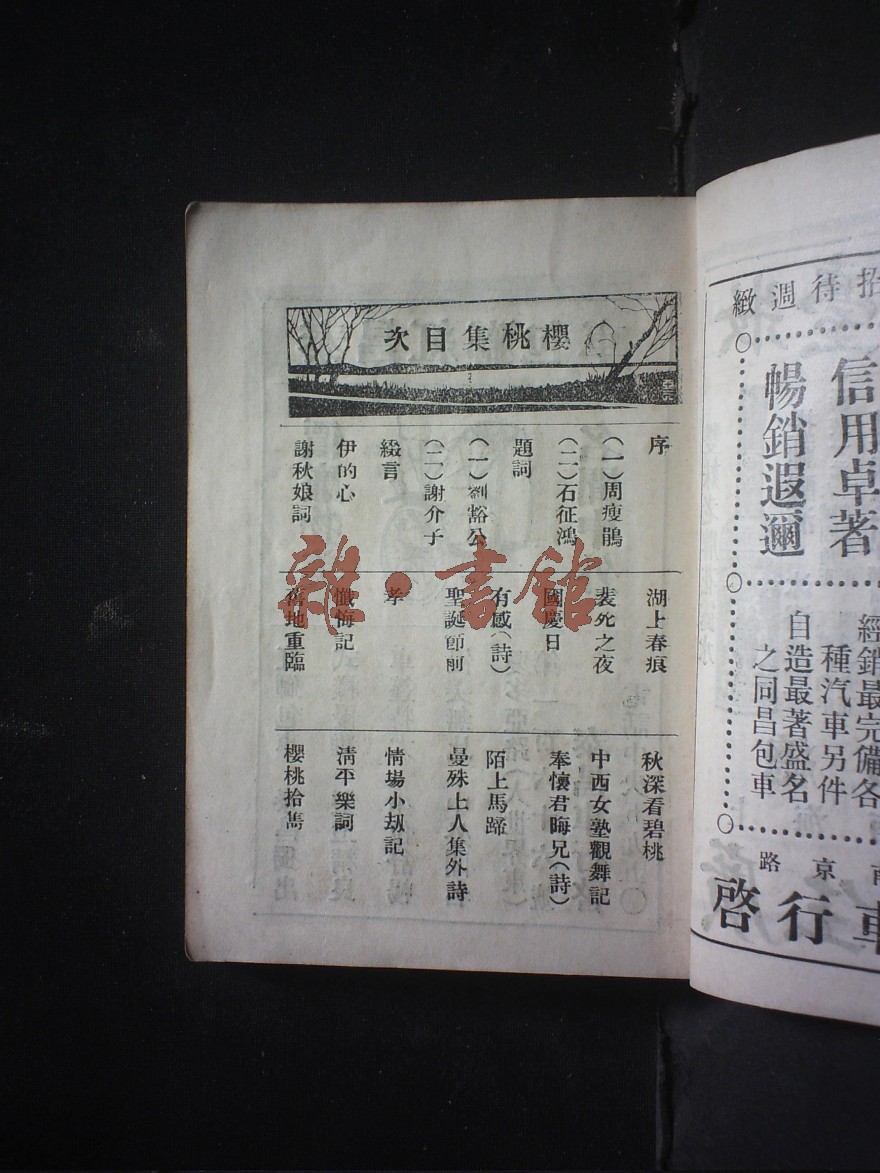 櫻桃集目次
序
（一）周瘦鵑
（二）石征鴻
題詞
（一）劉豁公
（二）謝介子
綴言
伊的心
謝秋娘詞
湖上春痕
裴死之夜
國慶日
有感（詩）
聖誕節前
孝
懺悔記
舊地重臨
秋深看碧桃
中西女塾觀舞記
奉懷君晦兄（詩）
陌上馬蹄
曼殊上人集外詩
情場小劫記
淸平樂詞
櫻桃拾雋
雜·書館
招待週緻
信用卓著
暢銷遐邇
經銷最完備各
種汽車另件
自造最著盛名
之同昌包車
南京路
車行啓